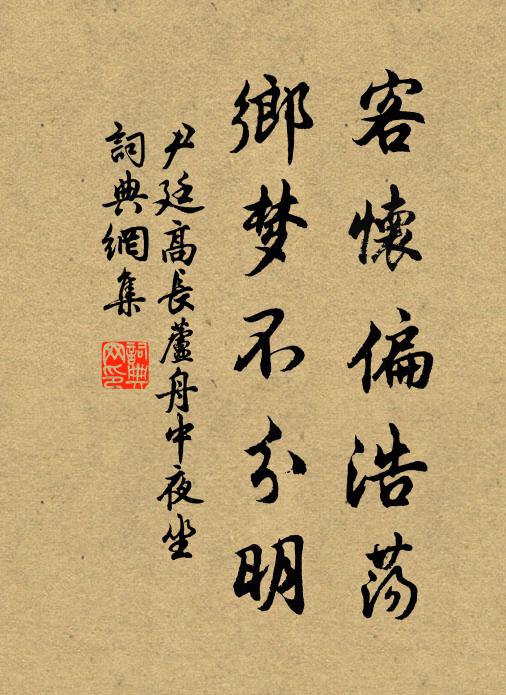 客懷偏浩蕩
鄉梦不分明
尹廷高長蘆舟中夜坐
詞典網集
詞典网印